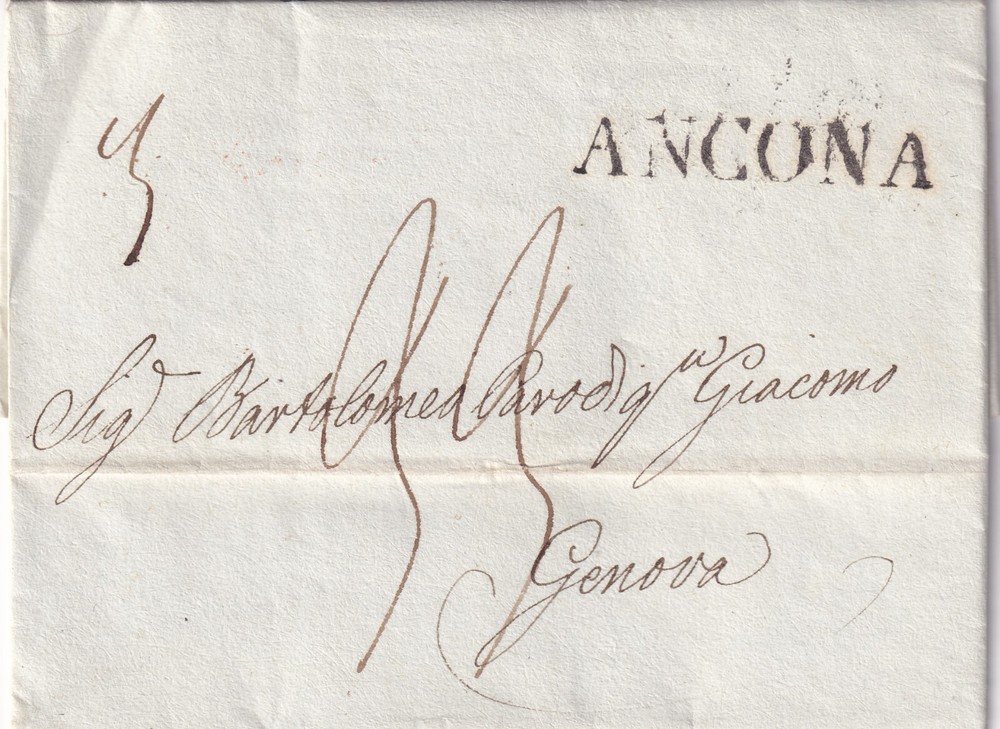 ANCONA
Sigʳ Bartolomeo Parodi qᵐ Giacomo
Genova